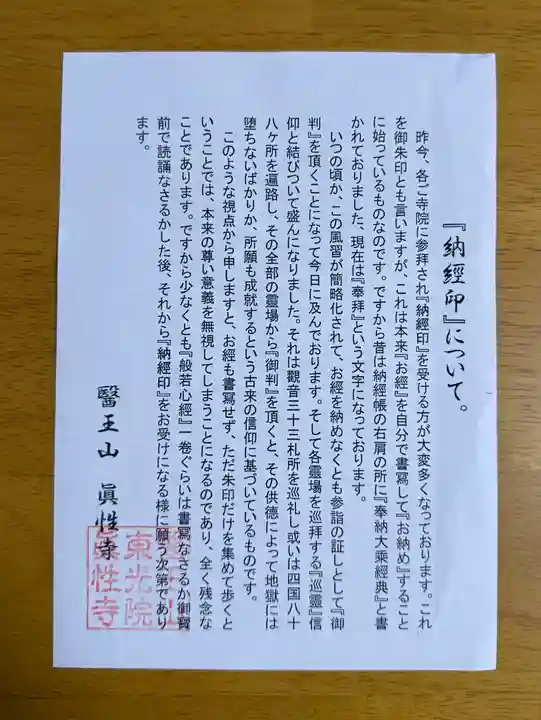 『納經印』について。
昨今、各ご寺院に参拝され『納經印』を受ける方が大変多くなっております。これ
を御朱印とも言いますが、これは本来『お經』を自分で書寫して『お納め』すること
に始っているものなのです。ですから昔は納經帳の右肩の所に『奉納大乘經典』と書
かれておりました、現在は『奉拜』という文字になっております。
いつの頃か、この風習が簡略化されて、お經を納めなくとも参詣の証しとして『御
判』を頂くことになって今日に及んでおります。そして各靈場を巡拜する『巡靈』信
仰と結びついて盛んになりました。それは觀音三十三札所を巡礼し或いは四国八十
八ヶ所を遍路し、その全部の靈場から『御判』を頂くと、その供徳によって地獄には
堕ちないばかりか、所願も成就するという古来の信仰に基づいているものです。
このような視点から申しますと、お經も書寫せず、ただ朱印だけを集めて歩くと
いうことでは、本来の尊い意義を無視してしまうことになるのであり、全く残念な
ことであります。ですから少なくとも『般若心經』一巻ぐらいは書寫なさるか御寳
前で読誦なさるかした後、それから『納經印』をお受けになる様に願う次第であり
ます。
醫王山 眞性寺
醫王山
東光院
眞性寺